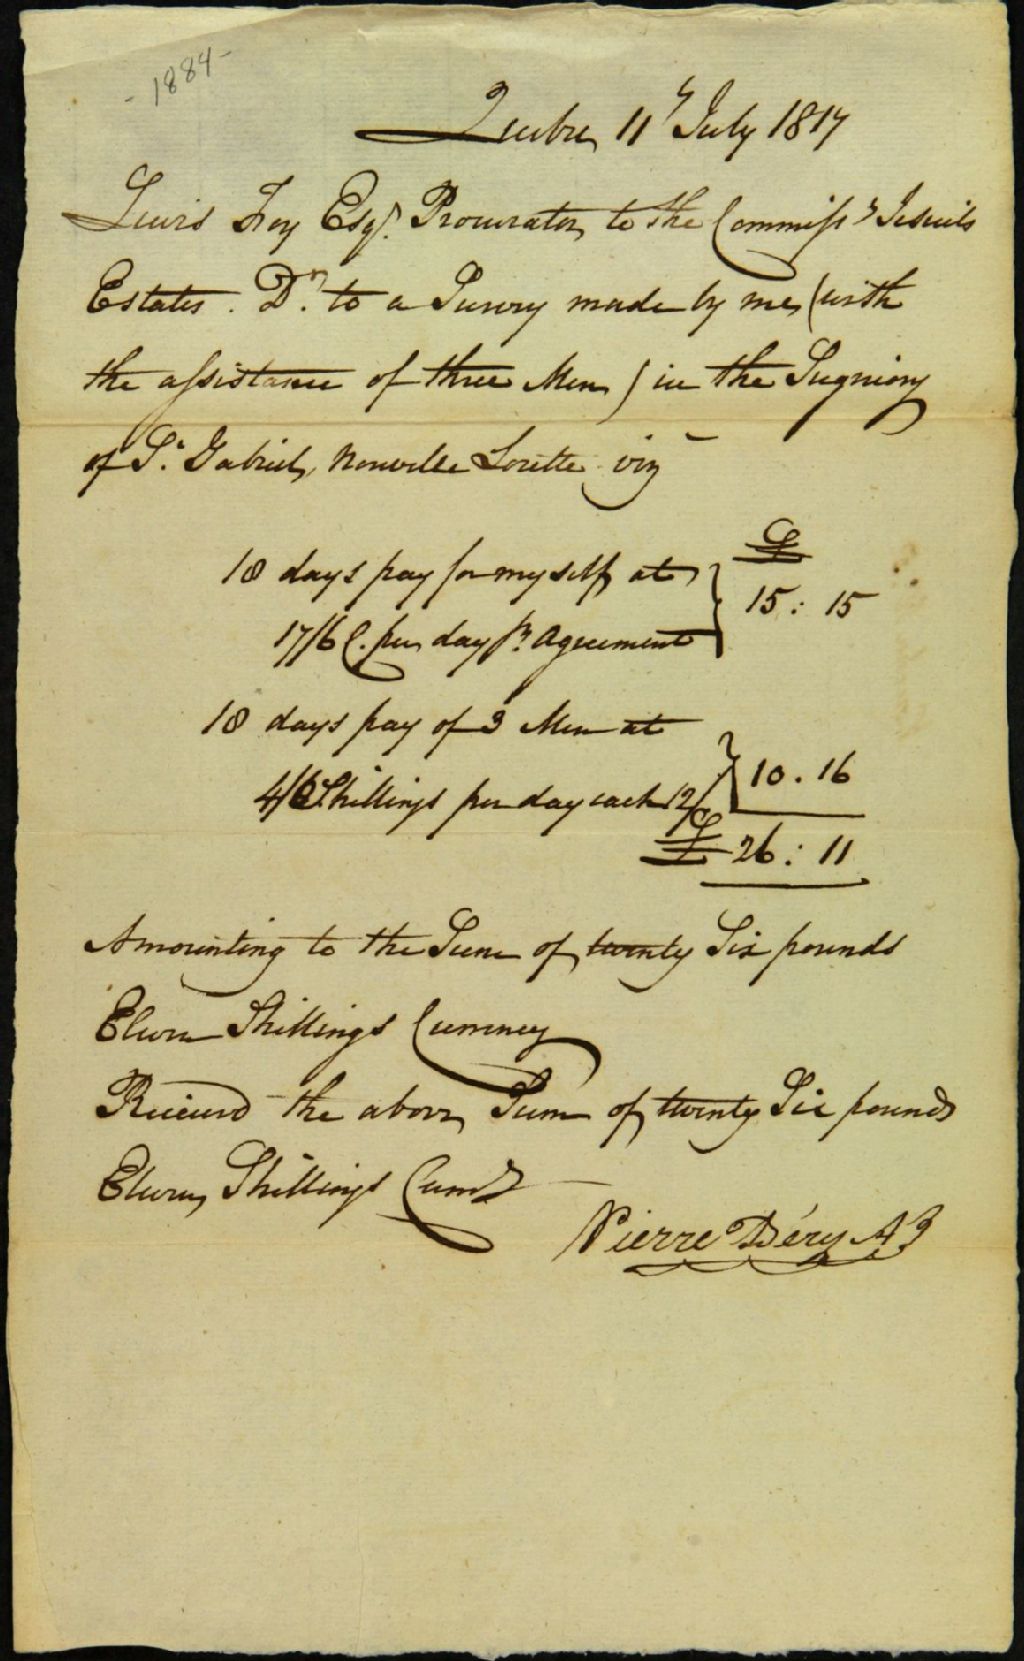 - 1884 -
Quebec 11th July 1817
Lewis Foy Esqr. Procurator to the Commissrs Jesuits
Estates. Dr. to a Survey made by me (with
the assistance of three Men) in the Seigniory
of St. Gabriel, Nouvelle Lorette viz
£
18 days pay for myself at } 15 : 15
17/6 C. per day pr. Agreement
18 days pay of 3 Men at
4/ Shillings per day each 12/ } 10 . 16
£ 26 : 11
Amounting to the Sum of twenty Six pounds
Eleven Shillings Currency
Received the above Sum of twenty Six pounds
Eleven Shillings Curry
Pierre Déry A